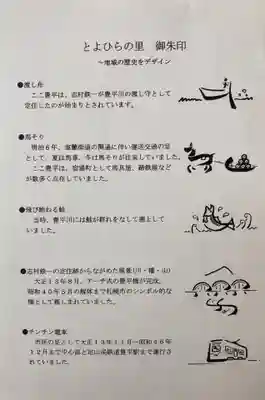 とよひらの里 御朱印
〜地域の歴史をデザイン
●渡し舟
ここ豊平は、志村鉄一が豊平川の渡し守として
定住したのが始まりとされています。
●馬そり
明治6年、室蘭街道の開通に伴い運送交通の足
として、夏は馬車、冬は馬そりが往来していました。
ここ豊平は、宿場町として馬具屋、蹄鉄屋など
が数多く点在していました。
●飛び跳ねる鮭
当時、豊平川には鮭が群れをなして遡上して
いました。
●志村鉄一の定住跡からながめた風景(川・橋・山)
大正13年8月、アーチ式の豊平橋が完成。
昭和40年5月の解体まで札幌市のシンボル的な
橋として親しまれていました。
●チンチン電車
市民の足として大正13年11月〜昭和46年
12月まで中心部と定山渓鉄道豊平駅まで運行さ
れていました。